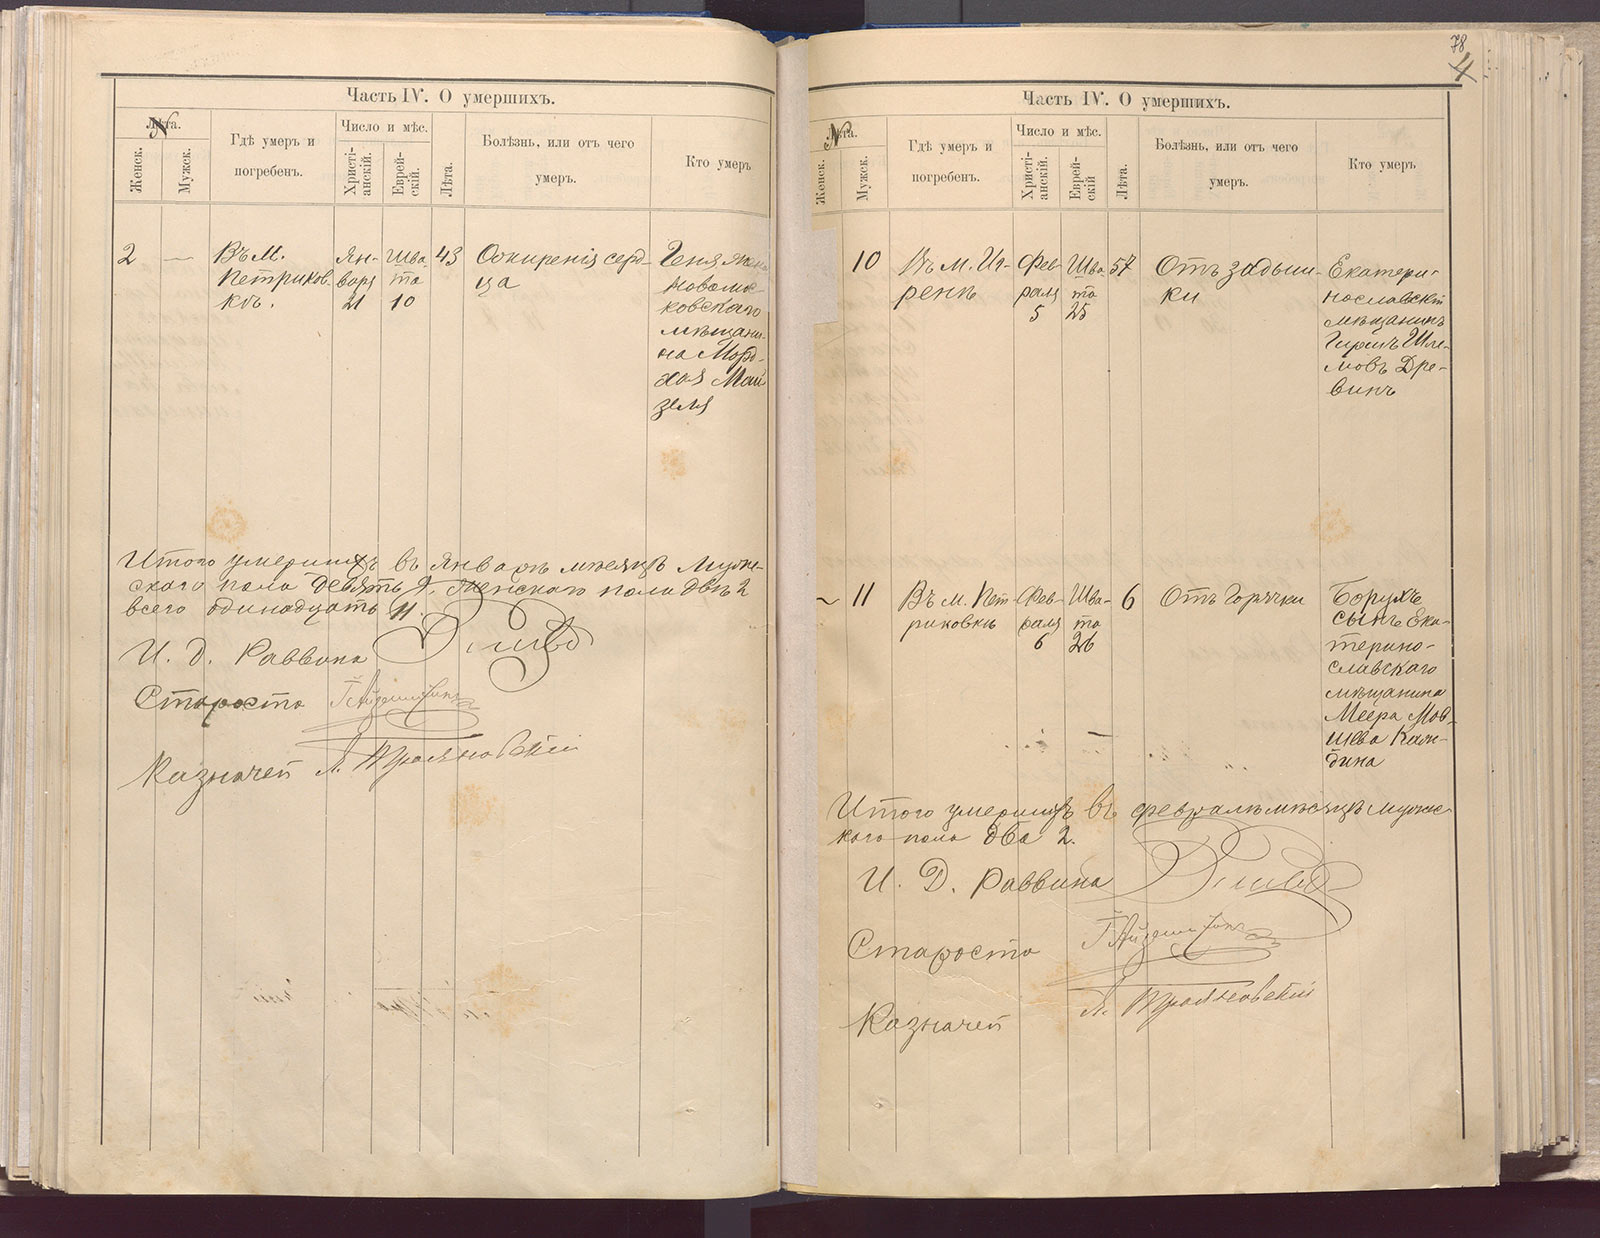 Часть IV. О умершихъ.
Лѣта.
N
Женск.
Мужск.
Гдѣ умеръ и
погребенъ.
Число и мѣс.
Христі-
анскій.
Еврей-
скій.
Лѣта.
Болѣзнь, или отъ чего
умеръ.
Кто умеръ
2
—
Въ М.
Петриков-
кѣ.
Ян-
варя
21
Шва-
та
10
43
Ожиренія серд-
ца
Геня жена
новомос-
ковскаго
мѣщани-
на Морд-
хая Май
зеля
Итого умершихъ въ Январѣ мѣсяцѣ Муже-
скаго пола девять 9. Женскаго пола двѣ 2
всего одинадцать 11.
И. Д. Раввина
Староста
Казначей Л. Трояновскій
78
4
Часть IV. О умершихъ.
Лѣта.
N
Женск.
Мужск.
Гдѣ умеръ и
погребенъ.
Число и мѣс.
Христі-
анскій.
Еврей-
скій
Лѣта.
Болѣзнь, или отъ чего
умеръ.
Кто умеръ
10
Въ м. Иг-
ренѣ
Фев-
раля
5
Шва-
та
25
57
Отъ задыш-
ки
Екатери-
нославскій
мѣщанинъ
Гиршъ Шле-
мовъ Дре-
винъ
11
Въ м. Пет
риковкѣ
Фев-
раля
6
Шва-
та
26
6
Отъ Горячки
Борухъ
сынъ Ека-
терино-
славскаго
мѣщанина
Меера Мов-
шева Каль-
дина
Итого умершихъ въ февралѣ мѣсяцѣ мужес-
каго пола два 2.
И. Д. Раввина
Староста
Л. Трояновскій
Казначей